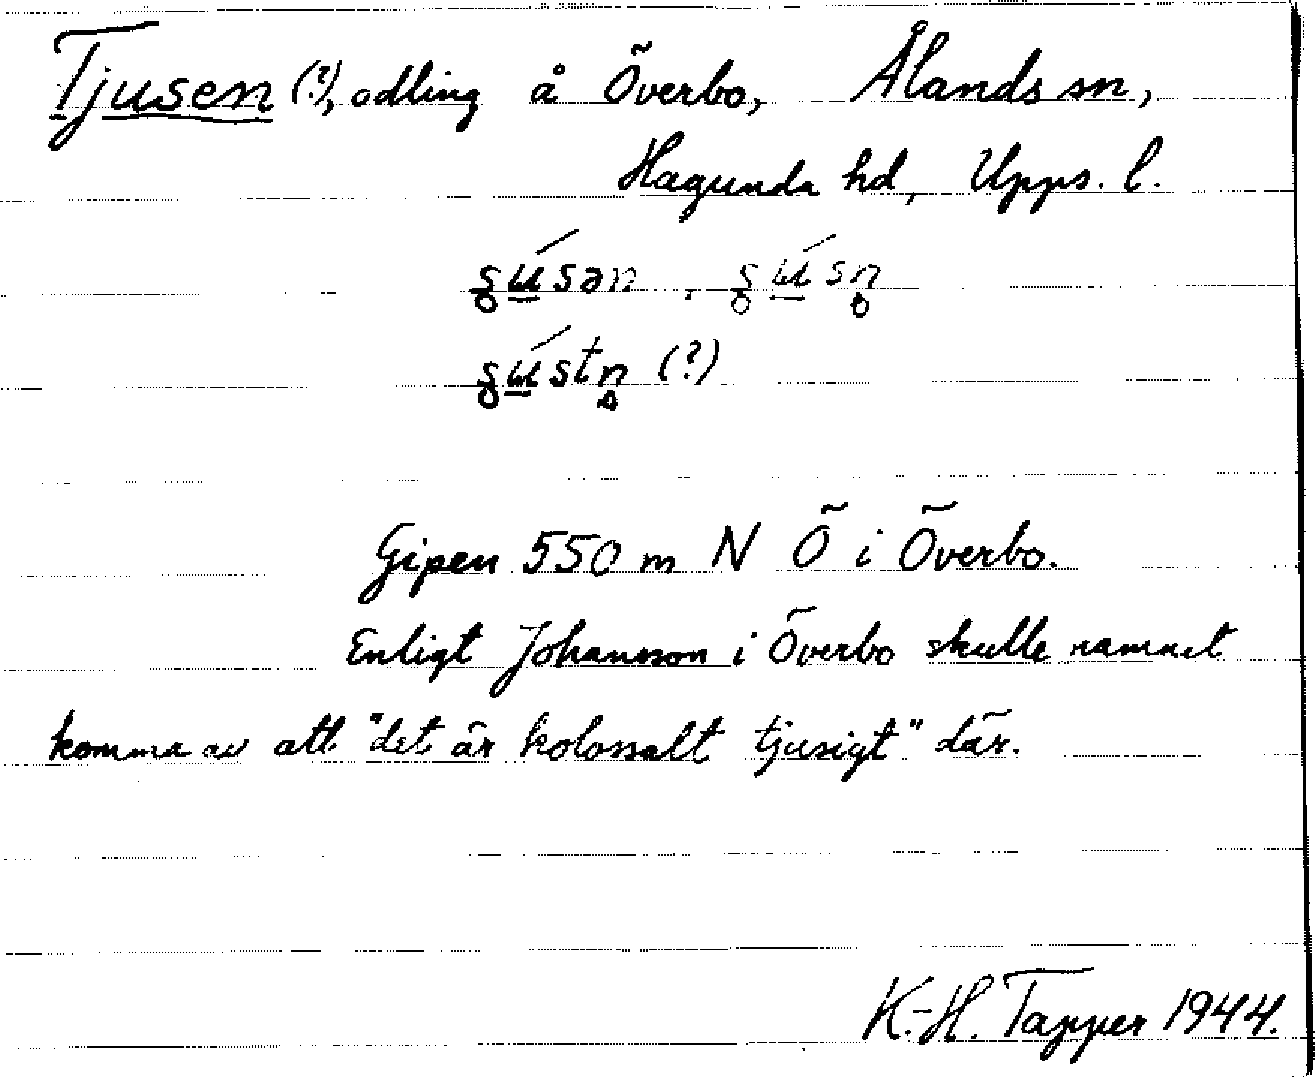 Tjusen (?), odling å Överbo, Ålands sn,
Hagunda hd, Upps. l.
Gipen 550 m N Ö i Överbo.
Enligt Johansson i Överbo skulle namnet
komma av att "det är kolossalt tjusigt" där.
K.-H. Tapper 1944.